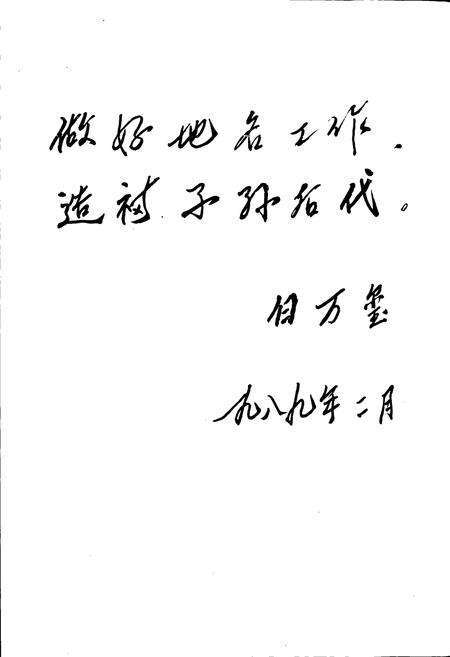 做好地名工作，
造福子孙后代。
白万玺
一九八九年二月